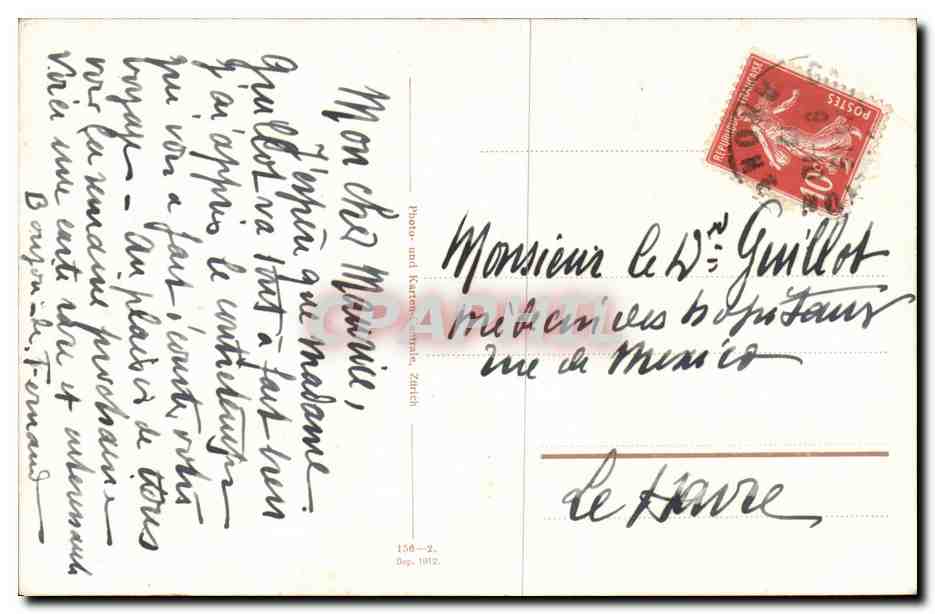 Mon cher Maurice,
J'espère que madame
Guillot va tout à fait bien
J'ai appris le contretemps
qui vous a fait écourter votre
voyage – Au plaisir de vous
voir la semaine prochaine –
Voici une carte rare et intéressante
Bonjour de Fernand
Photo- und Karten-Centrale, Zürich
156–2.
Dep. 1912.
RÉPUBLIQUE FRANÇAISE
POSTES
10c
Monsieur le Dr Guillot
médecin des hopitaux
rue de Mexico
Le Havre
CPAPHIL